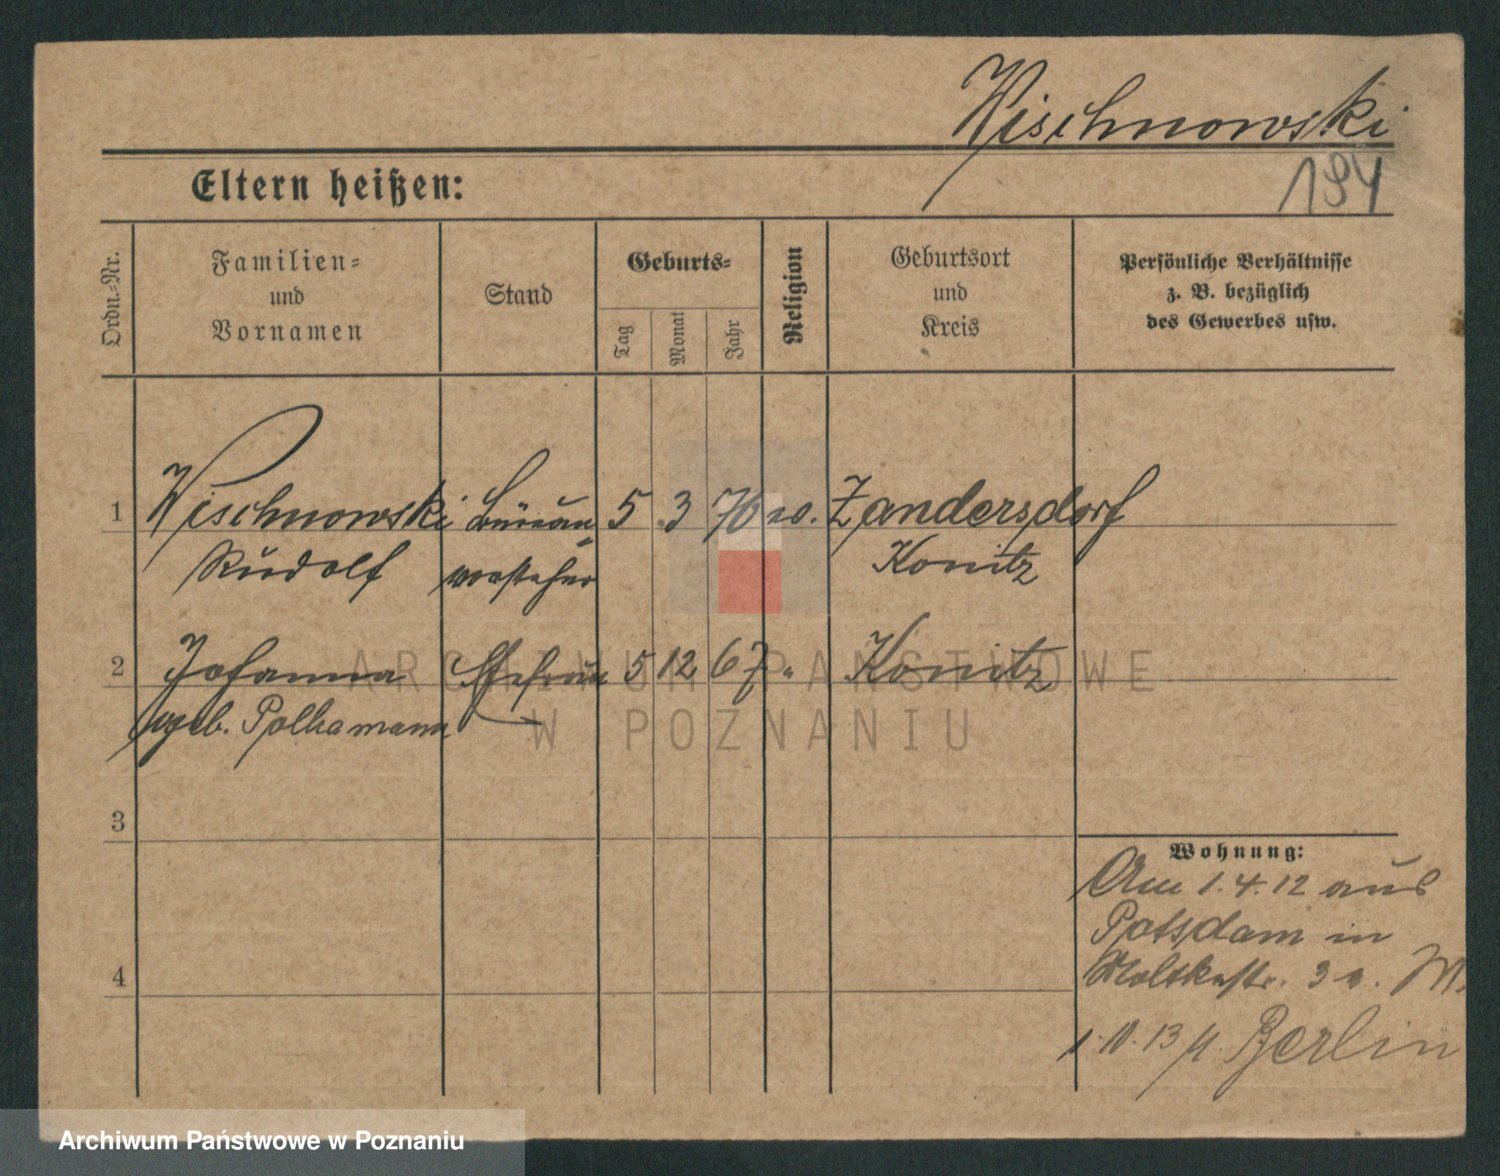 Wischnowski
194
Eltern heißen:
Ordn.-Nr.
Familien-
und
Vornamen
Stand
Geburts-
Tag
Monat
Jahr
Religion
Geburtsort
und
Kreis
Persönliche Verhältnisse
z. B. bezüglich
des Gewerbes usw.
1 Wischnowski Büreau 5 3 70 ev. Zandersdorf
Rudolf vorsteher Konitz
2 Johanna Ehefrau 5 12 67 " Konitz
geb. Polkamann
3
4
Wohnung:
Am 1.4.12 aus
Potsdam in
Moltkestr. 3 a. M.
13 Berlin
ARCHIWUM PAŃSTWOWE
W POZNANIU
Archiwum Państwowe w Poznaniu